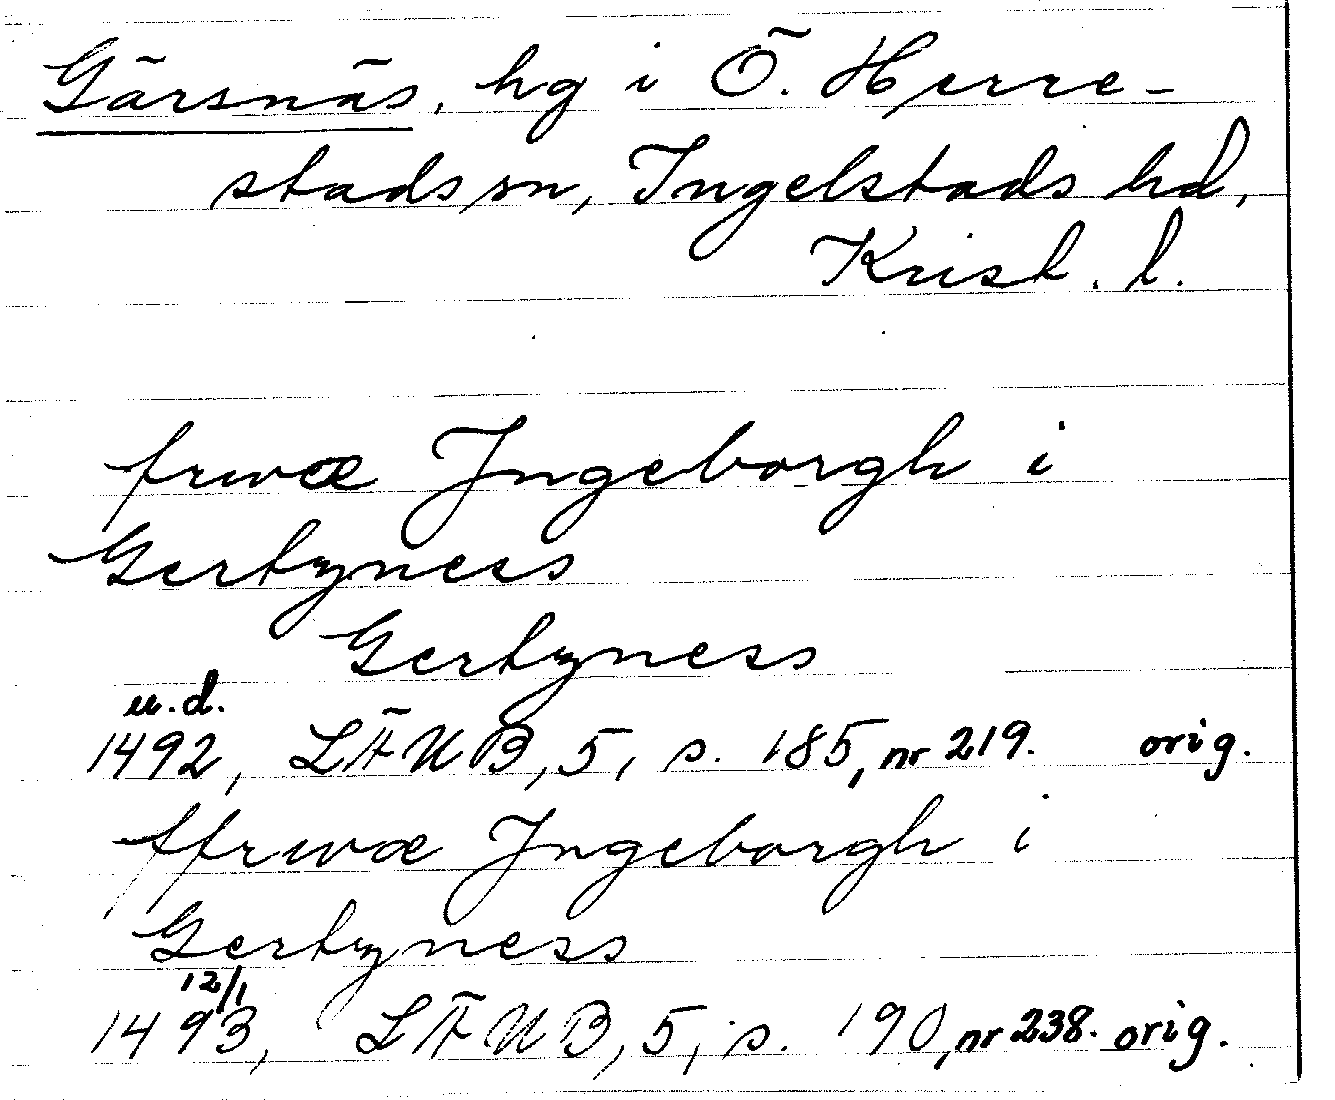 Gärsnäs, hg i Ö. Herre-
stads sn, Ingelstads hd,
Krist. l.
fruoæ Jngeborgh i
Gertzness
Gertzness
u.d.
1492, LÄUB, 5, s. 185, nr 219. orig.
ffruoæ Jngeborgh i
Gertzness
12/1
1493, LÄUB, 5, s. 190, nr 238. orig.